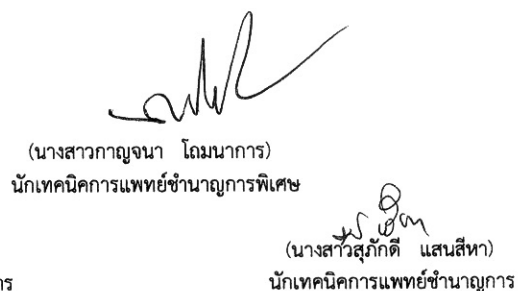 (นางสาวกาญจนา โถมนาการ)
นักเทคนิคการแพทย์ชำนาญการพิเศษ
(นางสาวสุภักดี แสนสีหา)
การ
นักเทคนิคการแพทย์ชำนาญการ